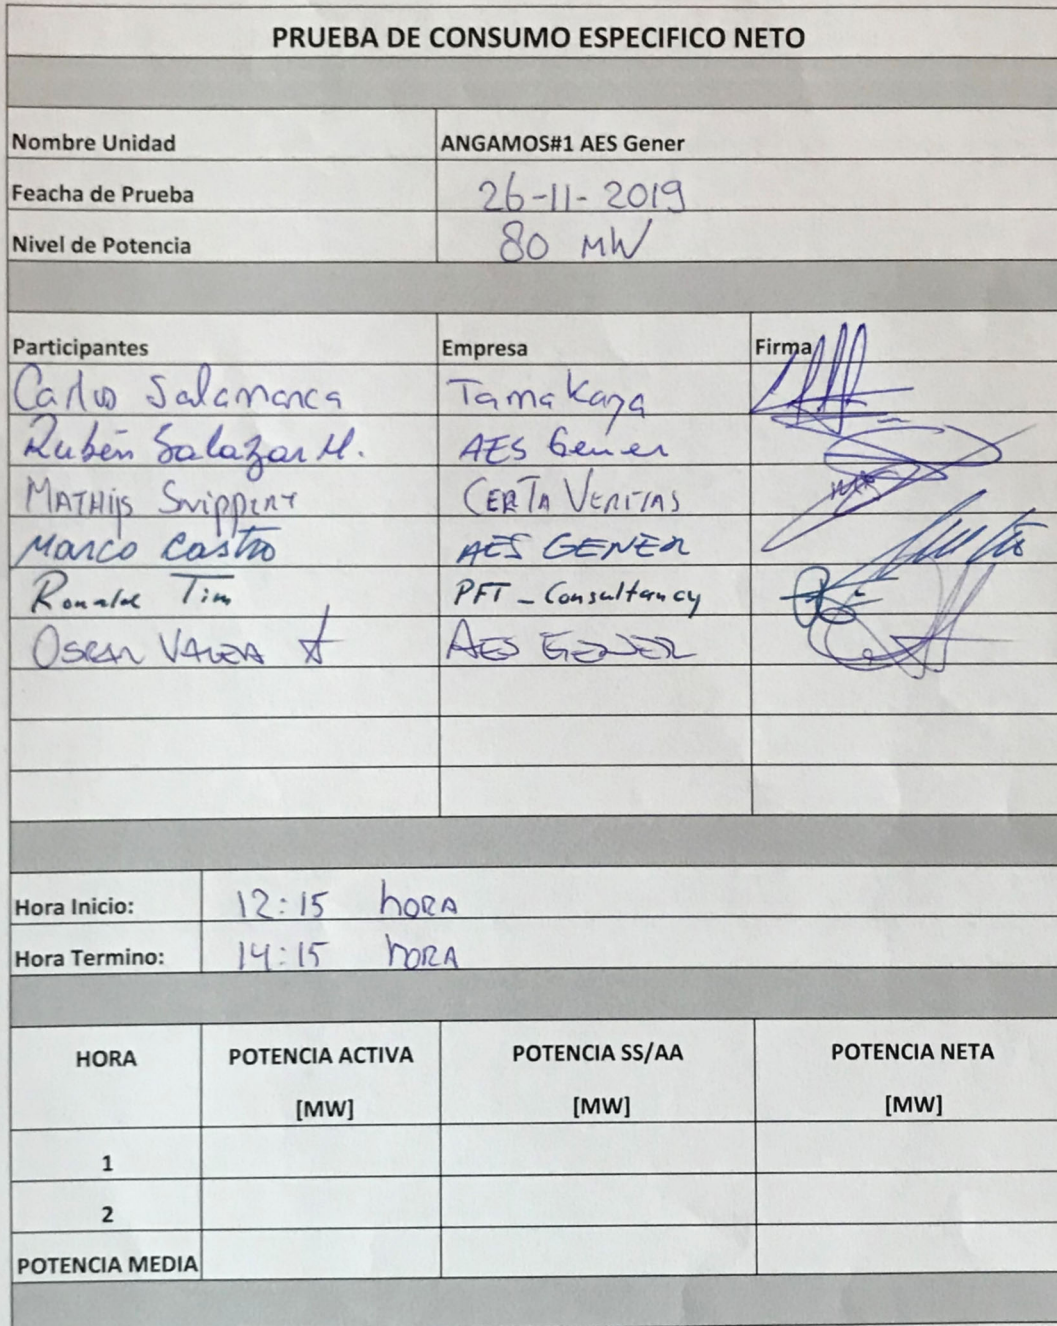 PRUEBA DE CONSUMO ESPECIFICO NETO
Nombre Unidad ANGAMOS#1 AES Gener
Feacha de Prueba 26-11-2019
Nivel de Potencia 80 MW
Participantes Empresa Firma
Carlos Salamanca Tamakaya
Rubén Salazar M. AES Gener
MATHIJS CERTA VERITAS
Marco Castro AES GENER
Ronald Tim PFT - Consultancy
OSCAR AES GENER
Hora Inicio: 12:15 hORA
Hora Termino: 14:15 hORA
HORA POTENCIA ACTIVA POTENCIA SS/AA POTENCIA NETA
[MW] [MW] [MW]
1
2
POTENCIA MEDIA